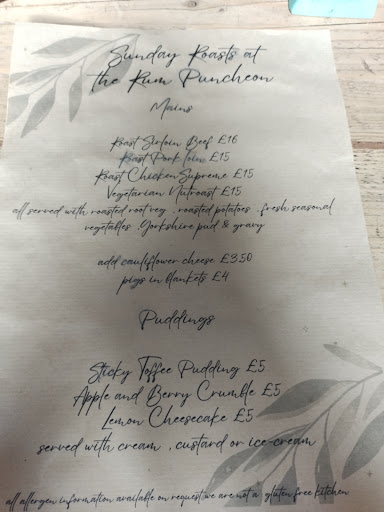 Sunday Roasts at
the Rum Puncheon
Mains
Roast Sirloin Beef £16
Roast Pork Loin £15
Roast Chicken Supreme £15
Vegetarian Nutroast £15
all served with roasted root veg , roasted potatoes , fresh seasonal
vegetables ,Yorkshire pud & gravy
add cauliflower cheese £3.50
pigs in blankets £4
Puddings
Sticky Toffee Pudding £5
Apple and Berry Crumble £5
Lemon Cheesecake £5
served with cream , custard or ice-cream
all allergen information available on request,we are not a gluten free kitchen